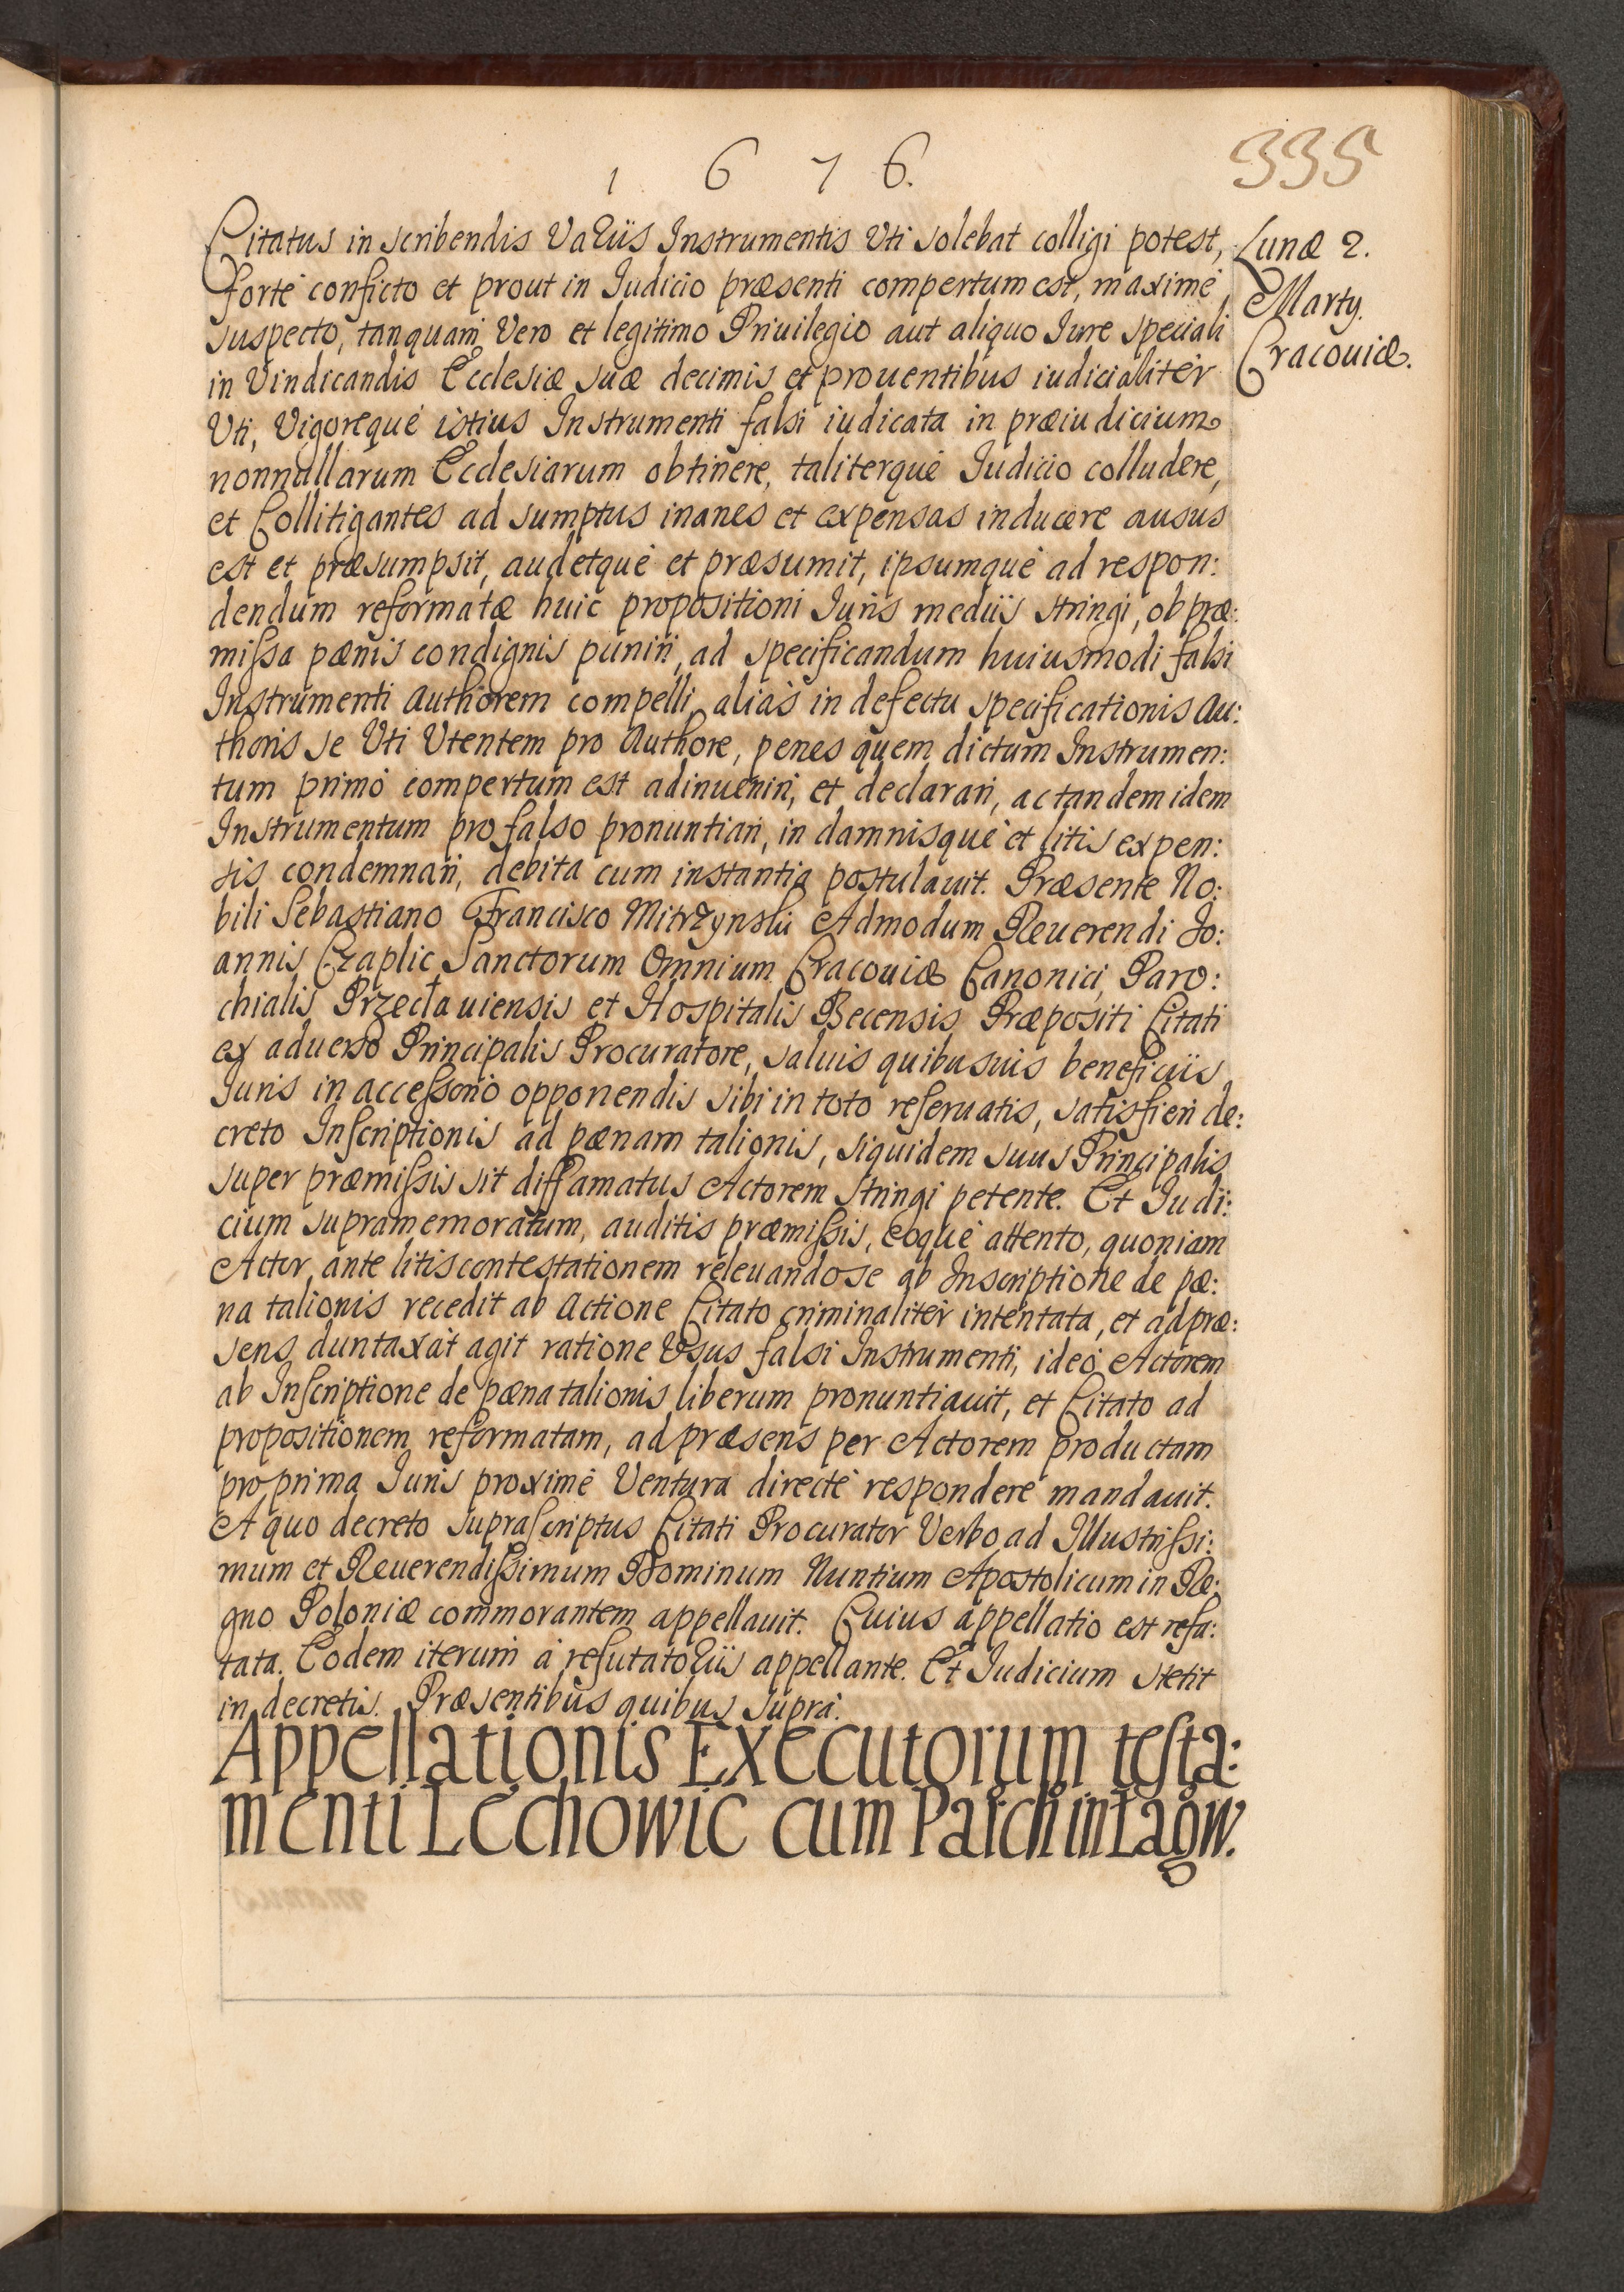 1 6 7 6.
335
Citatus in scribendis Varijs Instrumentis Vti solebat colligi potest,
forté conficto et prout in Iudicio præsenti compertum est, maximé
suspecto, tanquam Vero et legitimo Priuilegio aut aliquo Iure speciali
in Vindicandis Ecclesiæ suæ decimis et prouentibus iudicialitér
Vti, Vigorequé istius Instrumenti falsi iudicata in præiudicium
nonnullarum Ecclesiarum obtinere, taliterqué Iudicio colludere,
et Collitigantes ad sumptus inanes et expensas inducere ausus
est et præsumpsit, audetqué et præsumit, ipsumqué ad respon:
dendum reformatæ huic propositioni Iuris medijs stringi, ob præ:
missa pænis condignis puniri, ad specificandum huiusmodi falsi
Instrumenti Authorem compelli, aliàs in defectu specificationis Au:
thoris se Vti Vtentem pro Authore, penes quem dictum Instrumen:
tum primó compertum est adinueniri, et declarari, ac tandem idem
Instrumentum pro falso pronuntiari, in damnisqué et litis expen:
sis condemnari, debita cum instantia postulauit. Præsente No:
bili Sebastiano Francisco Mitrzynski Admodum Reuerendi Jo:
annis Czaplic Sanctorum Omnium Cracouiæ Canonici, Paro:
chialis Przecłauiensis et Hospitalis Becensis Præpositi Citati
ex aduerso Principalis Procuratore, saluis quibusuis beneficijs
Iuris in accessorio opponendis sibi in toto reseruatis, satisfieri de:
creto Inscriptionis ad pænam talionis, siquidem suus Principalis
super præmissis sit diffamatus Actorem stringi petente. Et Iudi:
cium supramemoratum, auditis præmissis, eoqué attento, quoniam
Actor ante litiscontestationem releuando se ab Inscriptione de pæ:
na talionis recedit ab Actione Citato criminalitér intentata, et ad præ:
sens duntaxàt agit ratione Vsus falsi Instrumenti, ideó Actorem
ab Inscriptione de pæna talionis liberum pronuntiauit, et Citato ad
propositionem reformatam, ad præsens per Actorem productam
pro prima Iuris proximé Ventura directé respondere mandauit.
A quo decreto suprascriptus Citati Procurator Verbo ad Illustrissi:
mum et Reuerendissimum Dominum Nuntium Apostolicum in Re:
gno Poloniæ commorantem appellauit. Cuius appellatio est refu:
tata. Eodem iterum à refutatorijs appellante. Et Iudicium stetit
in decretis. Præsentibus quibus suprà.
Appellationis Executorum testa:
menti Lechowic cum Parch in Łagw.
Lunæ 2.
Marty.
Cracouiæ.